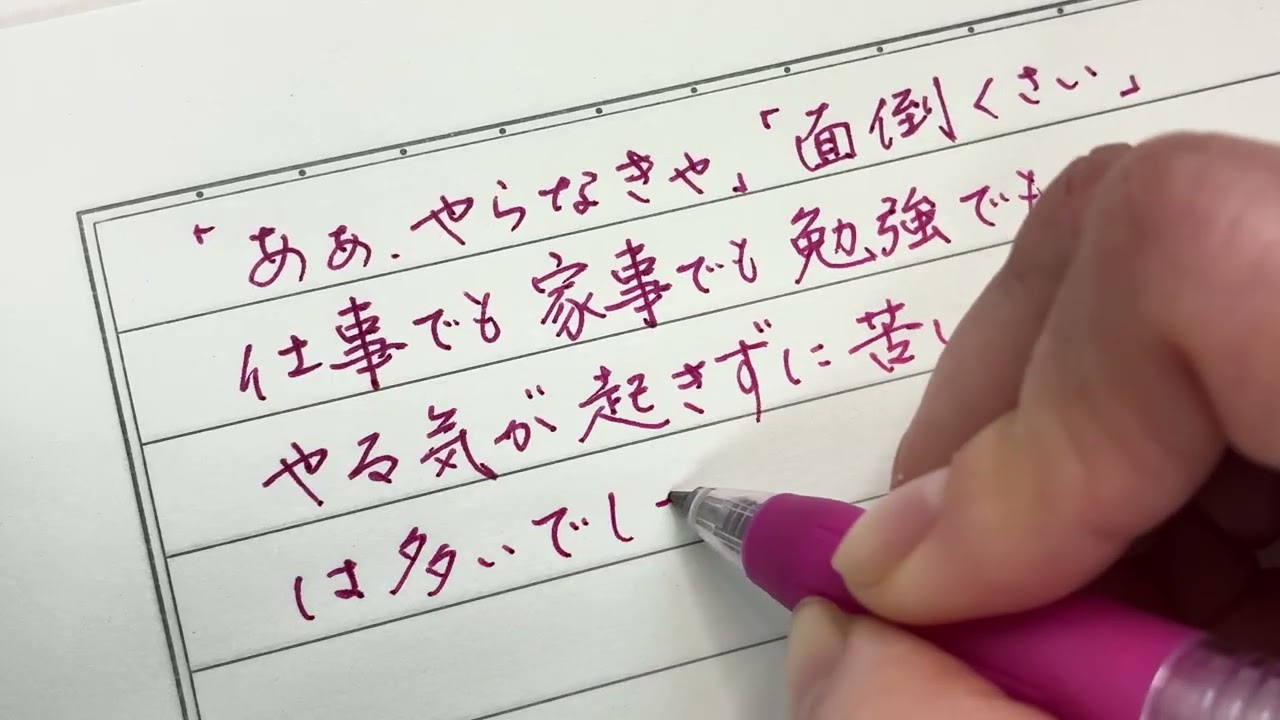 「ああ、やらなきゃ」「面倒くさい」
仕事でも家事でも勉強でも
やる気が起きずに苦し
は多いでし